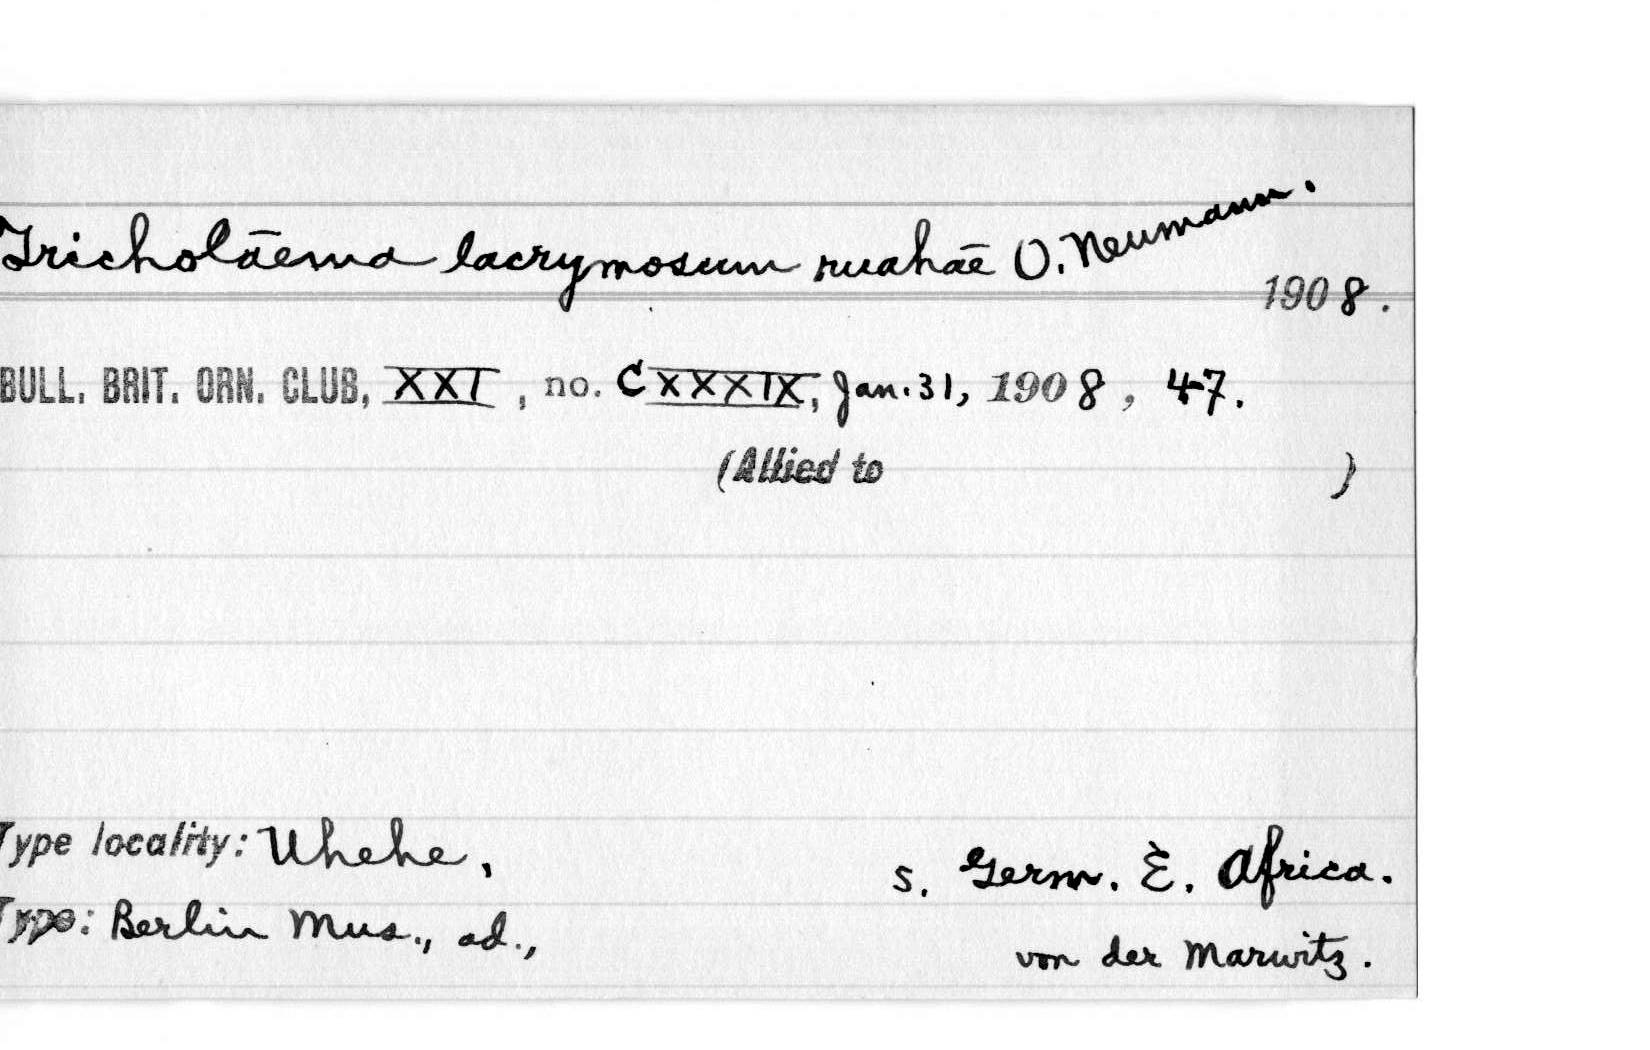 Tricholāema lacrymosum ruahāē O. Neumann.
1908.
BULL. BRIT. ORN. CLUB, XXI, no. CXXXIX, Jan. 31, 1908, 47.
(Allied to )
Type locality: Uhehe, s. Germ. E. Africa.
Type: Berlin Mus., ad., von der Marwitz.